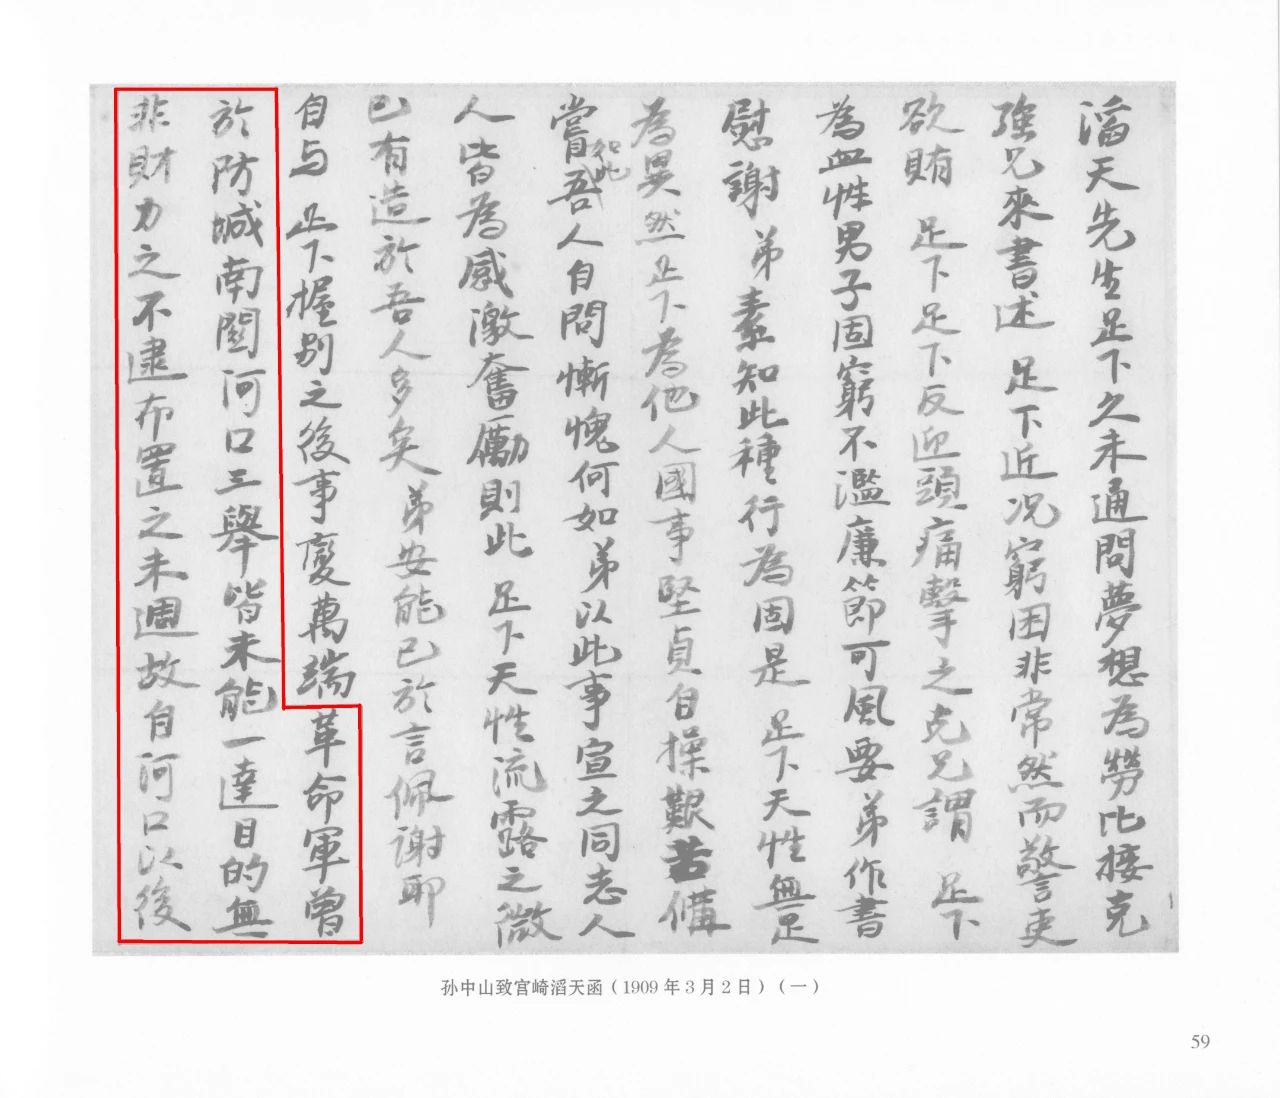 滔天先生足下久未通問夢想為勞比接克
強兄來書述足下近況窮困非常然而警吏
欲賄足下足下反迎頭痛擊之克兄謂足下
為血性男子固窮不濫廉節可風要弟作書
慰謝弟素知此種行為固是足下天性無足
為異然足下為他人國事堅貞自操艱苦備
嘗如此吾人自問慚愧何如弟以此事宣之同志人
人皆為感激奮勵則此足下天性流露之微
已有造於吾人多矣弟安能已於言佩謝耶
自与足下握別之後事變萬端革命軍曾
於防城南關河口三舉皆未能一達目的無
非財力之不逮布置之未週故自河口以後
孙中山致宫崎滔天函（1909年3月2日）（一）
59